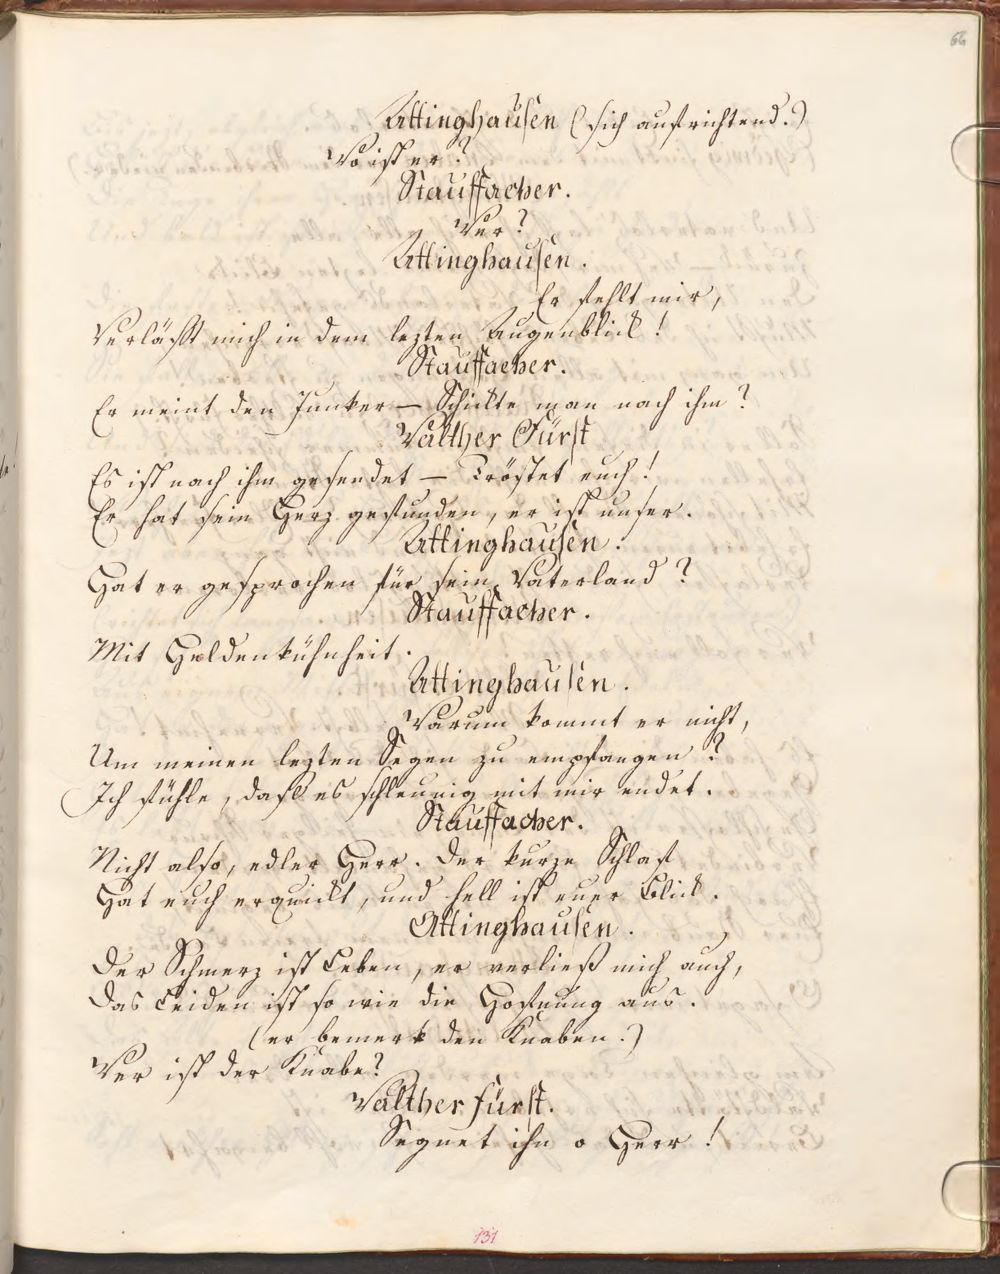 66
Attinghausen (sich aufrichtend.)
Wo ist er?
Stauffacher.
Wer?
Attinghausen.
Er fehlt mir,
Verläßt mich in dem lezten Augenblick!
Stauffacher.
Er meint den Junker — Schikte man nach ihm?
Walther Fürst
Es ist nach ihm gesendet — Tröstet euch!
Er hat sein Herz gefunden, er ist unser.
Attinghausen.
Hat er gesprochen für sein Vaterland?
Stauffacher.
Mit Heldenkühnheit.
Attinghausen.
Warum kommt er nicht,
Um meinen lezten Segen zu empfangen?
Ich fühle, daß es schleunig mit mir endet.
Stauffacher.
Nicht also, edler Herr. Der kurze Schlaf
Hat euch erquickt, und hell ist euer Blick.
Attinghausen.
Der Schmerz ist Leben, er verließ mich auch,
Das Leiden ist so wie die Hofnung aus.
(er bemerk den Knaben.)
Wer ist der Knabe?
Walther Fürst.
Segnet ihn o Herr!
131